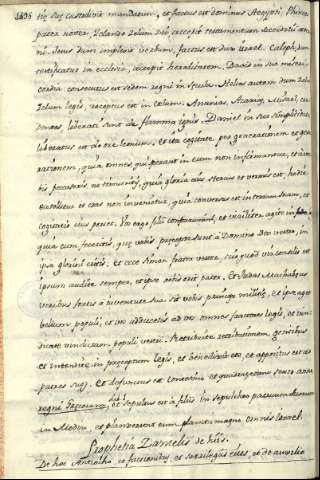 tiæ suæ custodivit mandatum, et factus est dominus Aegypti, Phinees
pater noster, zelando zelum dei, accepit testamentum sacerdotii æter-
ni. Jesus dum implevit verbum, factus est dux Israel. Caleph, dum
testificatur in ecclesia, accepit hæreditatem. David in sua miseri-
cordia consecutus est sedem regni in sæcula. Helias autem dum zelat
zelum legis, receptus est in cœlum. Ananias, Azarias, Misael, cre-
dentes, liberati sunt de flamma ignis. Daniel in sua simplicitate
liberatus est de ore leonum. et ita cogitate per generationem et gene-
rationem, quia omnes qui sperant in eum non infirmantur, et à ver-
bis peccatoris ne timueritis, quia gloria eius stercus et vermis est, hodie
extollitur et cras non invenietur, quia conversus est in terram suam, et
cogitatio eius periit. Vos ergo filii confortamini, et viriliter agite in
quia cum feceritis, quæ vobis præcepta sunt à Domino Deo vestro, in
ipsa gloriosi eritis. et ecce Simon frater vester, scio quod vir consilii est
ipsum audite semper, et ipse vobis erit pater. Et Judas Machabæus
viribus fortis a iuventute sua sit vobis princeps militiæ, et ipse aget
bellum populi, et vos adducetis ad vos omnes factores legis, et vin-
dicate vindictam populi vestri. Retribuite retributionem gentibus
et intendite in præceptum legis, et benedixit eos, et appositus est ad
patres suos. et defunctus est centesimo et quadragesimo sexto anno
et sepultus est à filiis in sepulchris patrum suorum
in Modin et planxerunt eum planctu magno omnis Israel.
Prophetia Danielis de hiis.
De hoc Antiocho, et factionibus, et sacrilegiis eius, et de